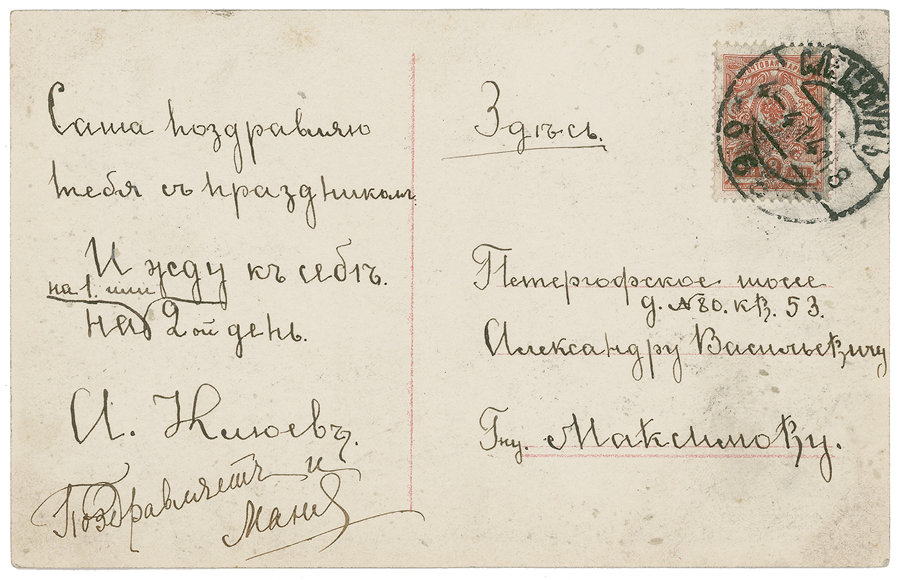 Саша поздравляю
тебя съ праздником
И жду къ себѣ.
на 1. или
на 2 ой день.
А. Клюевъ.
Поздравляетъ и
Маня
Здѣсь.
Петергофское шоссе
д. № 80. кв. 53.
Александру Васильевичу
Гну. Максимову.